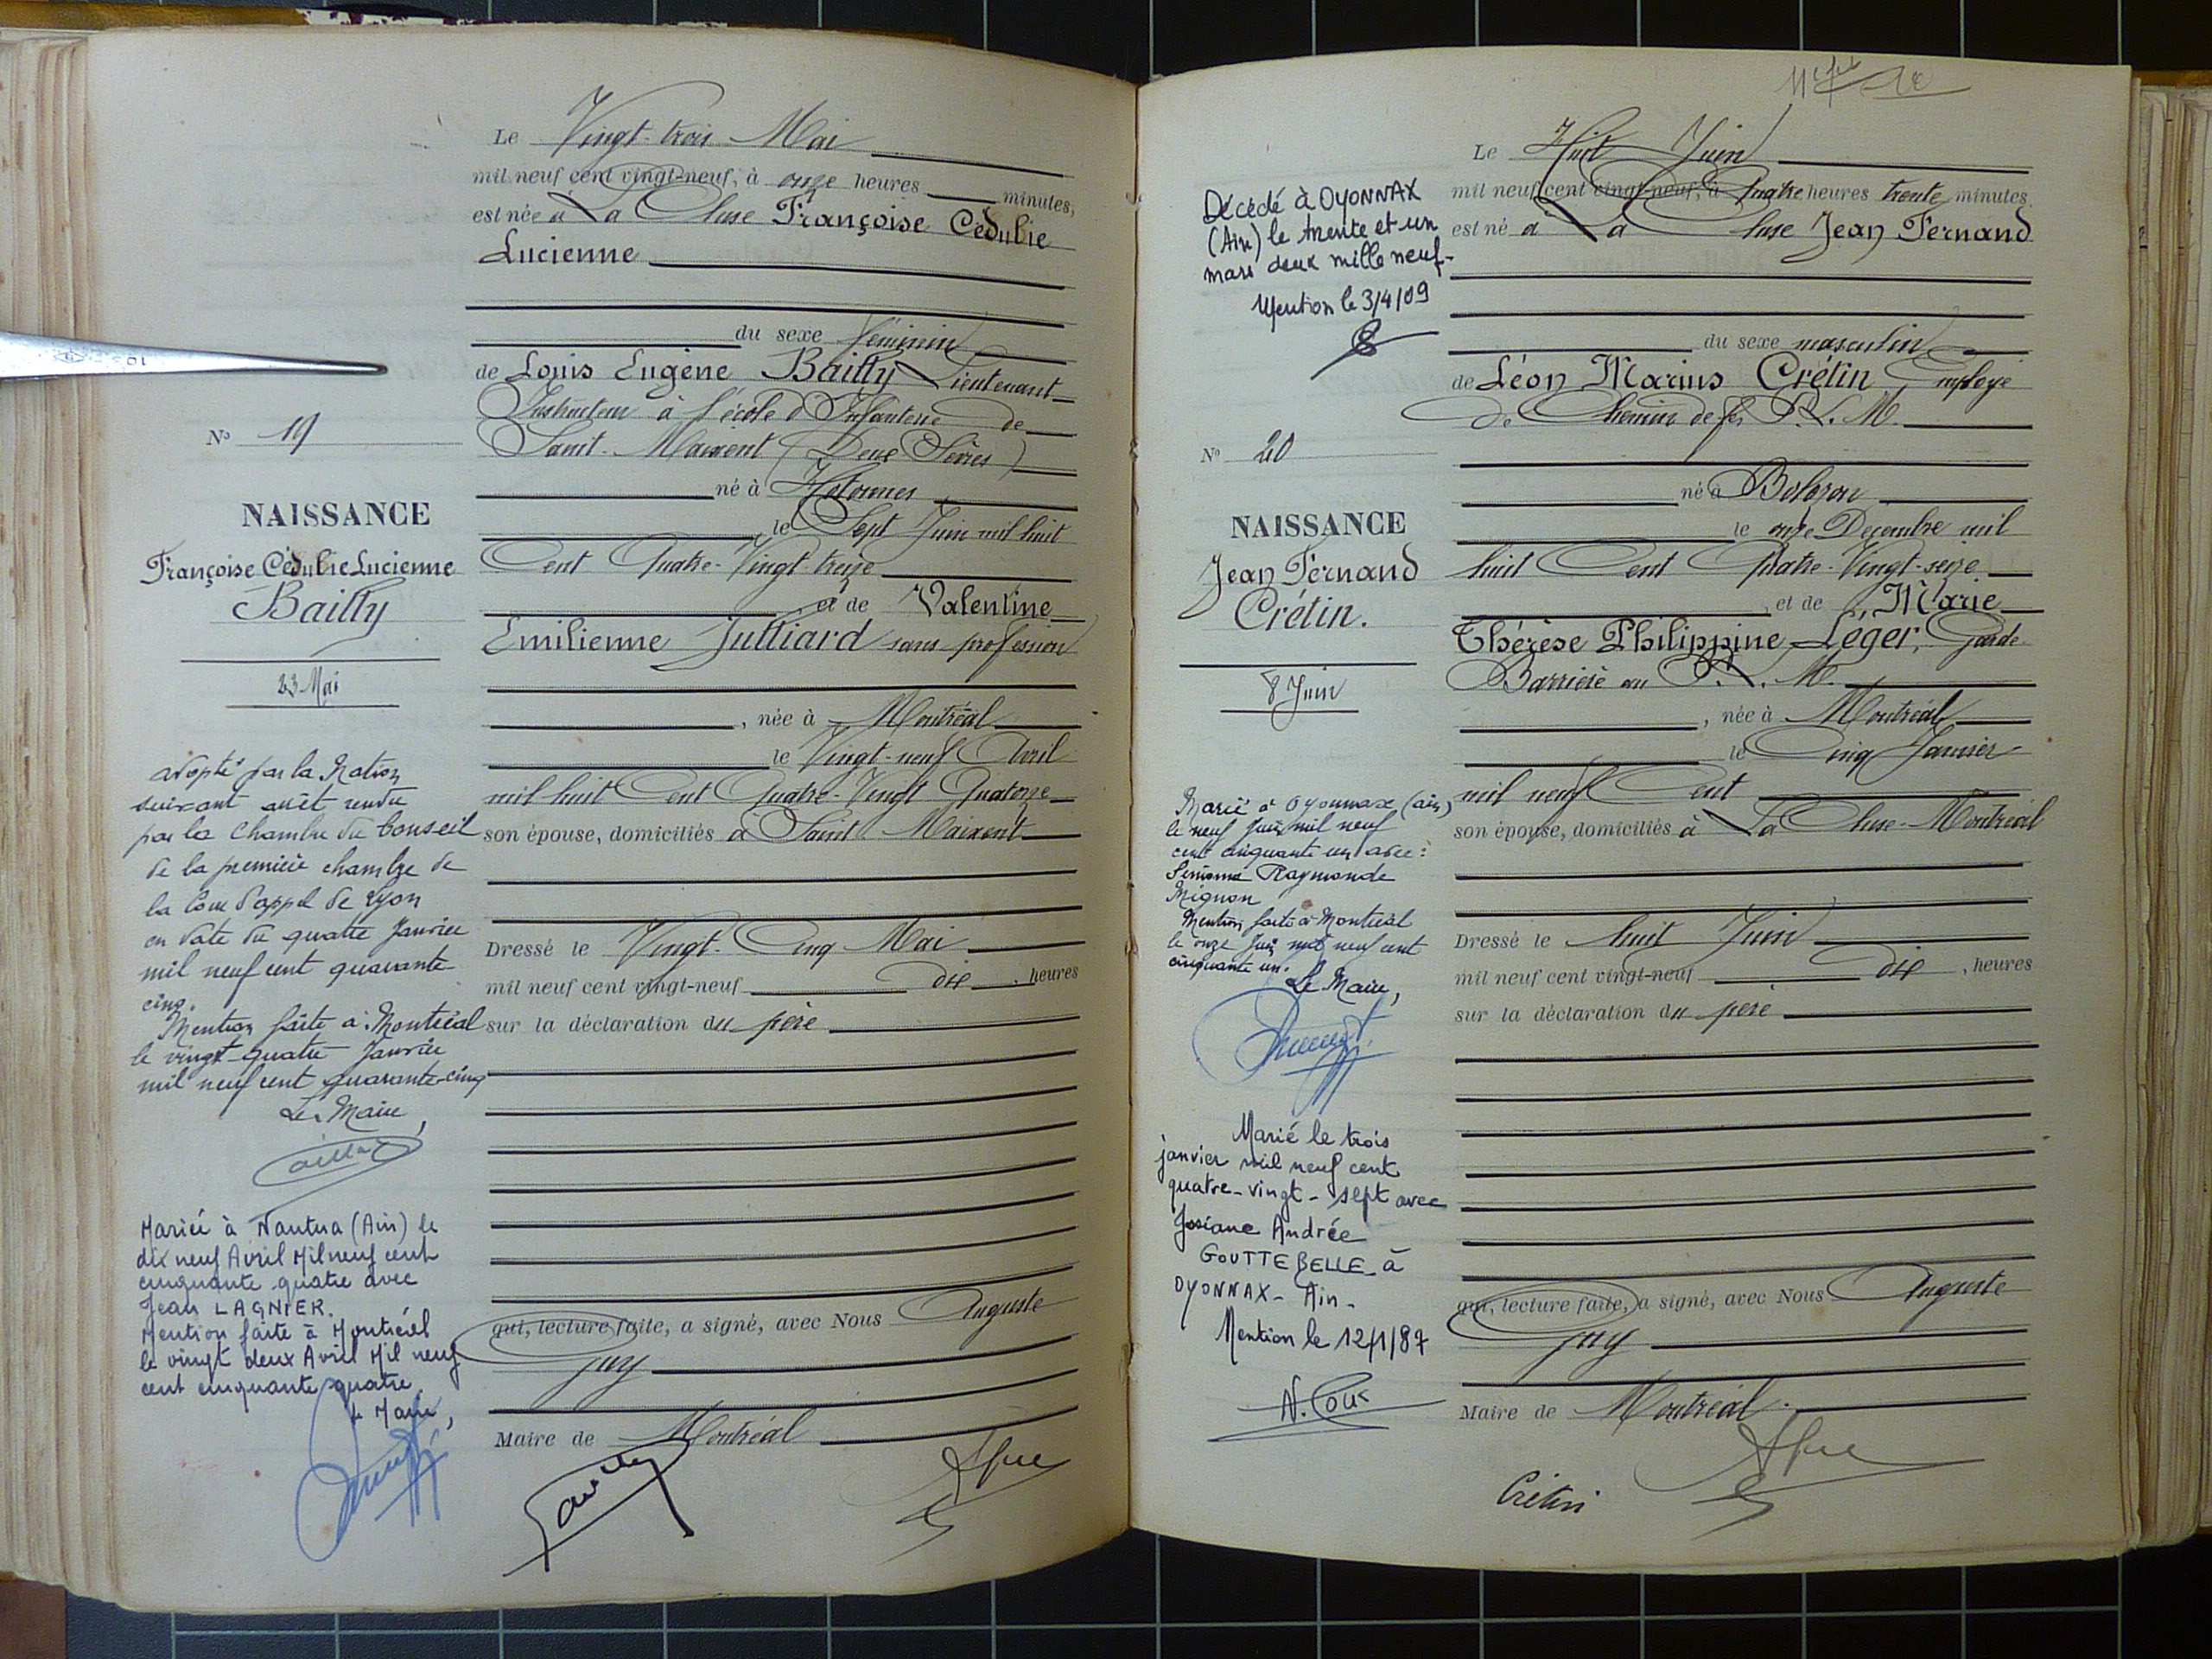 Le Vingt-trois Mai
mil neuf cent vingt-neuf, à onze heures minutes,
est née à La Cluse Françoise Cédulie
Lucienne
du sexe féminin
de Louis Eugène Bailly Lieutenant
Instructeur à l'école d'Infanterie de
Saint-Maixent (Deux Sèvres)
né à Hotonnes
le Sept Juin mil huit
Cent Quatre-Vingt-treize
et de Valentine
Emilienne Julliard sans profession
, née à Montréal
le Vingt-neuf Avril
mil huit Cent Quatre-Vingt Quatorze
son épouse, domiciliés à Saint-Maixent
Dressé le Vingt-Cinq Mai
mil neuf cent vingt-neuf dix, heures
sur la déclaration du père
qui, lecture faite, a signé, avec Nous Auguste
Juy
Maire de Montréal
No 19
NAISSANCE
Françoise Cédulie Lucienne
Bailly
23 Mai
adopté par la Nation
suivant arrêt rendu
par la Chambre du Conseil
de la première chambre de
la Cour d'appel de Lyon
en date du quatre Janvier
mil neuf cent quarante
cinq.
Mention faite à Montréal
le vingt-quatre Janvier
mil neuf cent quarante-cinq
Le Maire,
Mariée à Nantua (Ain) le
dix neuf Avril Mil neuf cent
cinquante quatre avec
Jean LAGNIER.
Mention faite à Montréal
le vingt deux Avril Mil neuf
cent cinquante quatre
Le Maire,
Le Huit Juin
mil neuf cent vingt-neuf, à Quatre heures trente minutes
est né à La Cluse Jean Fernand
du sexe masculin
de Léon Marius Crétin, Employé
de Chemin de fer P.L.M.
né à Bolozon
le onze Décembre mil
huit Cent Quatre-Vingt-seize
, et de Marie
Thérèse Philippine Léger, Garde-
Barrière au P.L.M.
, née à Montréal
le Cinq Janvier
mil neuf Cent
son épouse, domiciliés à La Cluse-Montréal
Dressé le huit Juin
mil neuf cent vingt-neuf dix, heures
sur la déclaration du père
qui, lecture faite, a signé, avec Nous Auguste
Juy
Maire de Montréal.
Crétin
Décédé à OYONNAX
(Ain) le trente et un
mars deux mille neuf-
Mention le 3/4/09
No 20
NAISSANCE
Jean Fernand
Crétin.
8 Juin
Marié à Oyonnax (ain)
le neuf Juin mil neuf
cent cinquante un avec:
Simone Raymonde
Mignon
Mention faite à Montréal
le onze Juin mil neuf cent
cinquante un.
Le Maire,
Marié le trois
janvier mil neuf cent
quatre-vingt-sept avec
Josiane Andrée
GOUTTEBELLE à
OYONNAX - Ain -
Mention le 12/1/87